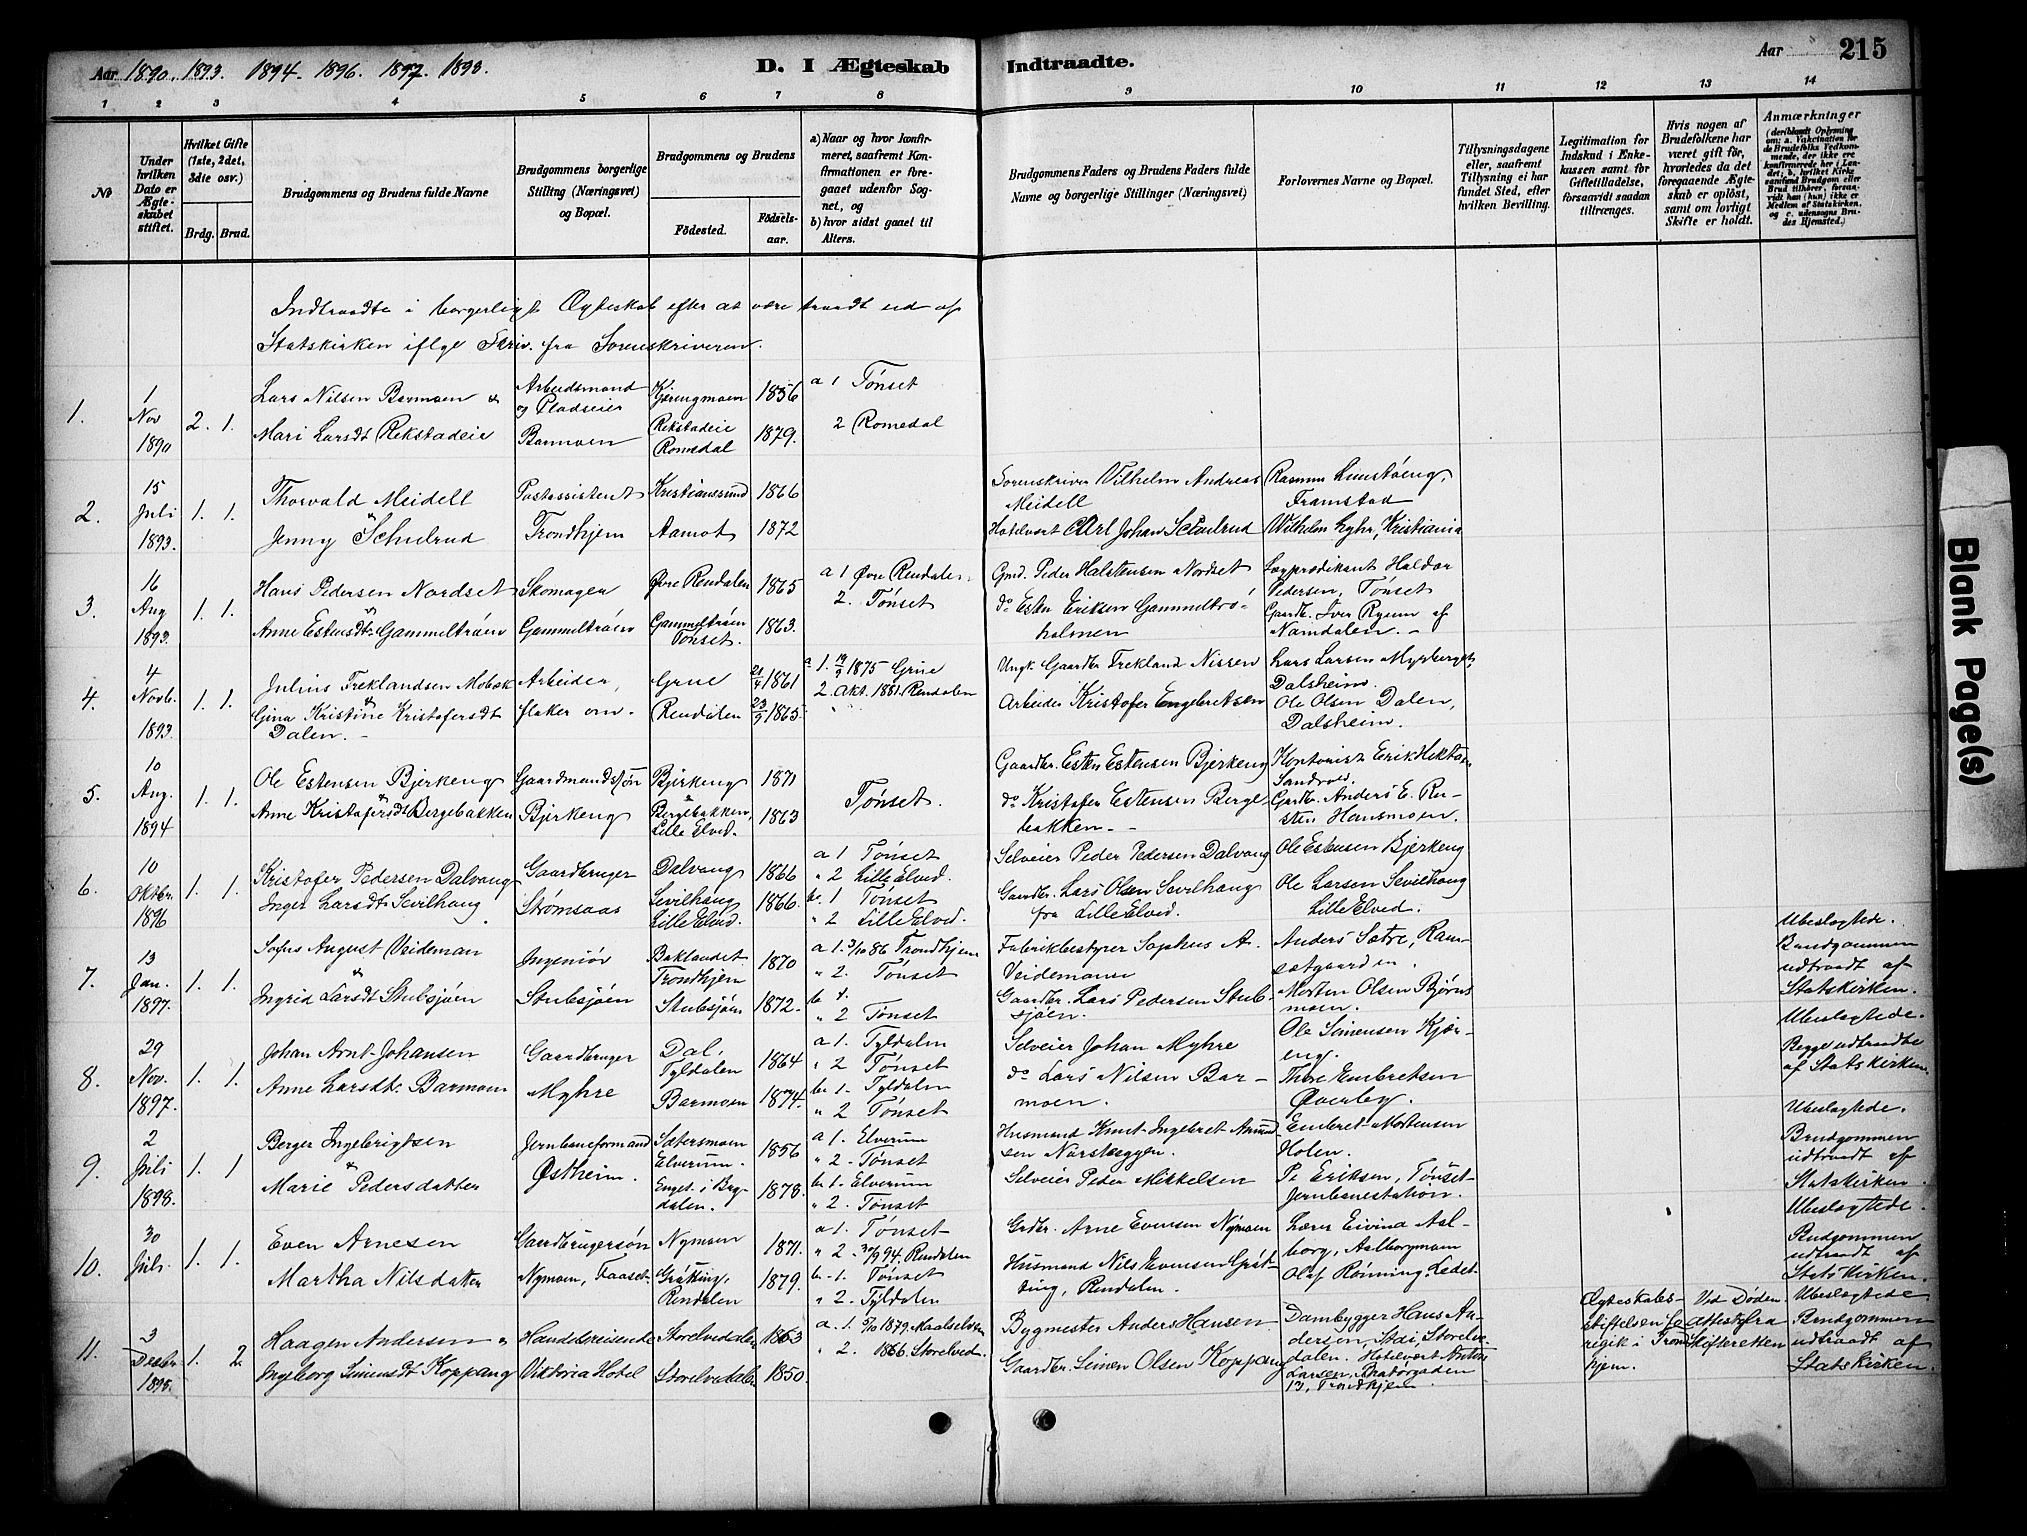 Aar 1890. 1893. 1894. 1896. 1897. 1898.
D. I Ægteskab Indtraadte.
Aar
215
1 2 3 4 5 6 7 8 9 10 11 12 13 14
No
Under hvilken Dato er Ægteskabet stiftet.
Hvilket Gifte (1ste, 2det, 3die osv.)
Brdg. Brud.
Brudgommens og Brudens fulde Navne
Brudgommens borgerlige Stilling (Næringsvei) og Bopæl.
Brudgommens og Brudens
Födested.
Födselsaar.
a) Naar og hvor konfirmeret, saafremt Konfirmationen er foregaaet udenfor Sognet, og
b) hvor sidst gaaet til Alters.
Brudgommens Faders og Brudens Faders fulde Navne og borgerlige Stillinger (Næringsvei)
Forlovernes Navne og Bopæl.
Tillysningsdagene eller, saafremt Tillysning ei har fundet Sted, efter hvilken Bevilling.
Legitimation for Indskud i Enkekassen samt for Giftetilladelse, forsaavidt saadan tiltrænges.
Hvis nogen af Brudefolkene har været gift för, hvorledes da det foregaaende Ægteskab er oplöst, samt om lovligt Skifte er holdt.
Anmærkninger
(deriblandt Oplysning om: a. Vakcination for de Brudefolks Vedkommende, der ikke ere konfirmerede her i Landet; b. hvilket Kirkesamfund Brudgom eller Brud tilhörer, forsaavidt han (hun) ikke er Medlem af Statskirken, og c. udensogns Brudes Hjemsted.)
Indtraadte i borgerligt Ægteskab efter at være traadt ud af
Statskirken iflge Skriv. fra Sorenskriveren.
1. 1 Nov 1890 2. 1.
Lars Nilsen Barmoen &
Mari Larsdt Rekstadeie
Arbeidsmand og Pladseier Barmoen
Kjærengmoen 1856
Rekstadeie Romedal 1879.
a 1 Tønset
2 Romedal
2. 15 Juli 1893. 1. 1.
Thorvald Meidell
&
Jenny Schulrud
Postassistent Trondhjem
Kristianssund 1866
Aamot 1872
Sorenskriver Vilhelm Andreas Meidell
Hotelvært Carl Johan Schulrud
Rasmus Limstøeng, Framstad
Wilhelm Lyhr, Kristiania
3. 16 Aug 1893. 1. 1.
Hans Pedersen Nordset
&
Anne Estensdt. Gammeltrøen
Skomager Gammeltrøen
Øvre Rendalen 1865
Gammeltrøen Tønset. 1863.
a 1 Øvre Rendalen
2. Tønset
Gmd. Peder Halstensen Nordset
do Esten Eriksen Gammeltrøholmen
Lægprædikant Haldor Pedersen, Tønset
Gaardbr. Iver Ryeun af Namdalen. -
4. 4 Novb. 1893. 1. 1.
Julius Treklandsen Mobæk
&
Gina Kristine Kristofersdt Dalen. -
Arbeider, flaker om.
Grue 21/4 1861
Rendalen 23/9 1865
a 1. 19/9 1875 Grue
2. Okt. 1881. Rendalen
Ungk. Gaardbr Trekland Nissen
Arbeider Kristofer Engebretsen
Lars Larsen Myrberget, Dalsheim.
Ole Olsen Dalen, Dalsheim.
5. 10 Aug. 1894 1. 1.
Ole Estensen Bjerkeng
&
Anne Kristofersdt Bergebakken
Gaardmandssøn Bjerkeng
Bjerkeng 1871
Bergebakken, Lille Elved. 1863
Tønset.
Gaardbr. Esten Estensen Bjerkeng
do Kristofer Estensen Bergebakken. -
Kontorist Erik Sandvold.
Gardbr. Anders E. Rusten Hansmoen.
6. 10 Oktbr. 1896 1. 1.
Kristofer Pedersen Dalvang
Inger Larsdt. Sevilhaug
Gaardbruger Strømsaas
Dalvang 1866
Sevilhaug Lille Elved. 1866.
a 1 Tønset
" 2 Lille Elved.
b. 1 Tønset
" 2 Lille Elved.
Selveier Peder Pedersen Dalvang
Gaardbr. Lars Olsen Sevilhaug fra Lille Elved.
Ole Estensen Bjerkeng
Ole Larsen Sevilhaug Lille Elved.
7. 13 Jan. 1897. 1. 1.
Sofus August Veideman
&
Ingrid Larsdt Stubsjøen
Ingeniør Stubsjøen
Baklandet Trondhjem 1870
Stubsjøen 1872.
a 1. 3/10 86 Trondhjem
" 2. Tønset
b 1.
" 2 Tønset
Fabrikbestyrer Sophus A. Veidemann
Gaardbr. Lars Pedersen Stubsjøen.
Anders Sætre, Ramsætgaarden.
Morten Olsen Bjørnsmoen.
Ubeslægtede. Brudgommen udtraadt af Statskirken.
8. 29 Nov. 1897. 1. 1.
Johan Arnt Johansen
Anne Larsdt. Barmoen
Gaardbruger Myhre
Dal, Tyldalen 1864
Barmoen 1874.
a 1. Tyldalen
" 2 Tønset
b. 1. Tyldalen
" 2 Tønset
Selveier Johan Myhre
do Lars Nilsen Barmoen.
Ole Simensen Kjæreng.
Thore Embretsen Øverby.
Ubeslægtede. Begge udtraadte af Statskirken.
9. 2 Juli 1898. 1. 1
Berger Ingebrigtsen
&
Marie Pedersdatter
Jernbaneformand Østheim.
Sætersmoen Elverum. 1856
Enget i Bygdalen. 1878.
a 1. Elverum
" 2. Tønset
b. 1. Elverum
" 2. Tønset
Husmand Knut Ingebret Amundsen Norstæggen.
Selveier Peder Mikkelsen
Embret Mortensen Holen.
P. Eriksen, Tønset Jernbanestation.
Ubeslægtede. Brudgommen udtraadt af Statskirken.
10. 30 Juli. 1. 1.
Even Arnesen
Martha Nilsdatter
Gaardbrugersøn Nymoen, Faaset.
Nymoen 1871.
Gråtting, Rendalen 1879.
a 1. Tønset
" 2. 30/9 94. Rendalen
b. 1. Tønset
" 2. Tyldalen
Grdbr. Arne Evensen Nymoen
Husmand Nils Evensen Gråtting, Rendalen.
Lærer Eivind Aalborg, Aalborgmoen
Olaf Rønning,
Ubeslægtede. Brudgommen udtraadt af Statskirken.
11. 3 Decbr. 1895. 1. 2.
Haagen Andersen &
Ingeborg Simensdt Koppang
Handelsreisende Viktoria Hotel
Storelvedalen 1863
Storelvedalen 1850.
a. 1. 5/10 1879. Maalselven
" 2. 1866. Storelved.
Bygmester Anders Hansen.
Gaardbr. Simen Olsen Koppang
Dambygger Hans Andersen, Stai, Storelvdalen. Hotelvært Anton Larsen, Bratørgaden 13, Trondhjem.
Ægteskabsstiftelsen foregik i Trondhjem.
Ved Døden. Attest fra Skifteretten
Ubeslægtede Brudgommen udtraadt af Statskirken.
Blank Page(s)